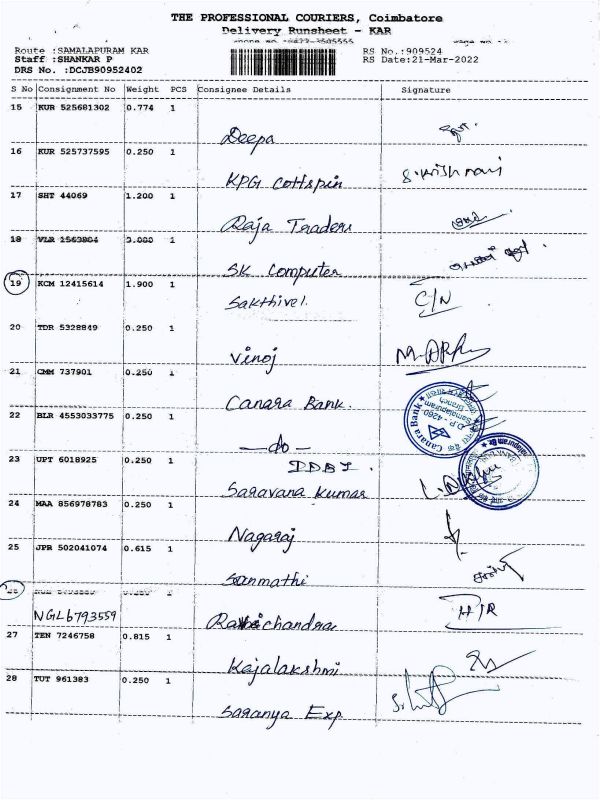 THE PROFESSIONAL COURIERS, Coimbatore
Delivery Runsheet - KAR
Route :SAMALAPURAM KAR
RS No.:909524
Staff :SHANKAR P
RS Date:21-Mar-2022
DRS No. :DCJB90952402
S No Consignment No Weight PCS Consignee Details Signature
15 KUR 525681302 0.774 1
Deepa
16 KUR 525737595 0.250 1
KPG Cottspin
17 SHT 44069 1.200 1
Raja Traders
18 VLR 1563804 3.000 1
SK Computer
19 KCM 12415614 1.900 1
Sakthivel
C/N
20 TDR 5328849 0.250 1
Vinoj
21 CMM 737901 0.250 1
Canara Bank.
22 BLR 4553033775 0.250 1
—do—
IDBI.
23 UPT 6018925 0.250 1
Saravana Kumar
24 MAA 856978783 0.250 1
Nagaraj
25 JPR 502041074 0.615 1
Sanmathi
NGL6793559
27 TEN 7246758 0.815 1
Rajalakshmi
28 TUT 961383 0.250 1
Saranya Exp
Canara Bank
D.P - 4260
Samalapuram
Branch